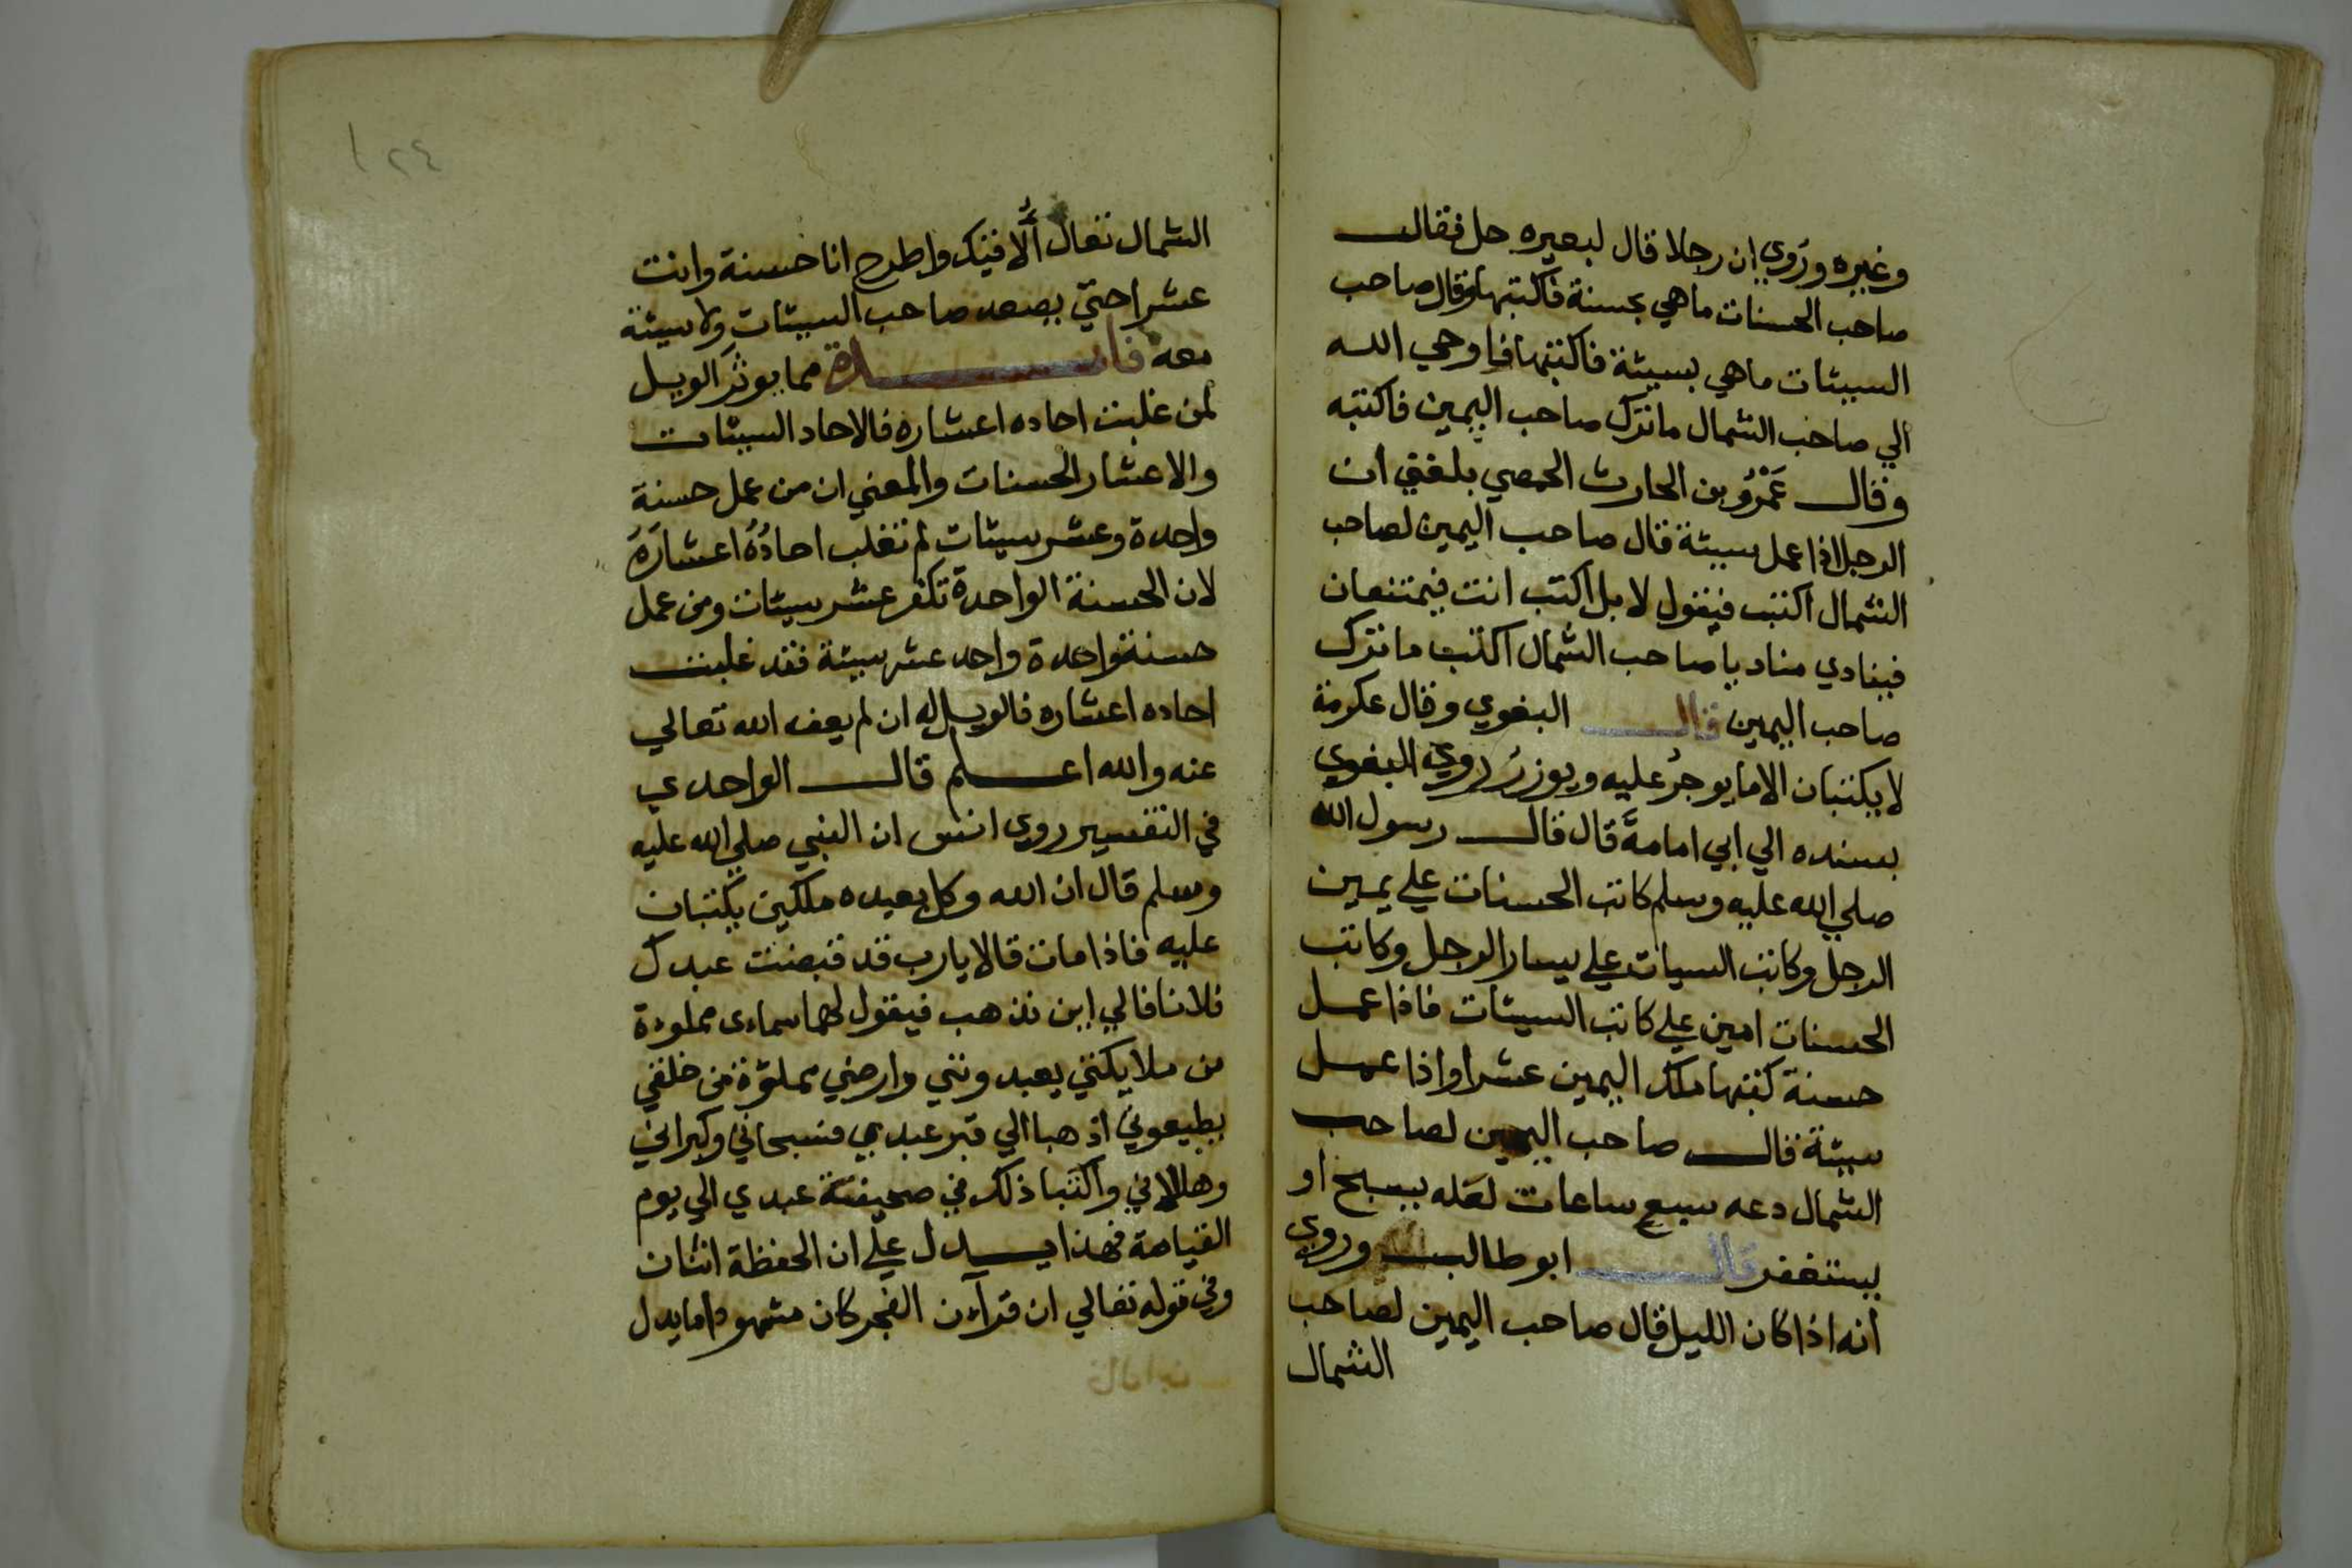 وغيره وروي ان رجلا قال لبعيره حل فقالـــ
صاحب الحسنات ماهي بحسنة فاكتبها وقال صاحب
السيئات ماهي بسيئة فاكتبها فاوحي الله
الي صاحب الشمال ما ترك صاحب اليمين فاكتبه
وقالـــ عَمْرُو بن الحارث الحمصي بلغني ان
الرجل اذا عمل سيئة قال صاحب اليمين لصاحب
الشمال اكتب فيقول لا بل اكتب انت فيمتنعان
فينادي مناد يا صاحب الشمال اكتب ما ترك
صاحب اليمين قالـــ البغوي وقال عكرمة
لا يكتبان الا ما يوجر عليه ويوزر روي البغوي
بسنده الي ابي امامة قال قالـــ رسول الله
صلي الله عليه وسلم كاتب الحسنات علي يمين
الرجل وكاتب السيات علي يسار الرجل وكاتب
الحسنات امين علي كاتب السيئات فاذا عمل
حسنة كتبها ملك اليمين عشرا واذا عمل
سيئة قالـــ صاحب اليمين لصاحب
الشمال دعه سبع ساعات لعله يسبح او
يستغفر قالـــ ابو طالب وروي
انه اذا كان الليل قال صاحب اليمين لصاحب
الشمال
١٢٤
الشمال تعال ألا فيك واطرح انا حسنة وانت
عشرا حتي يصعد صاحب السيئات ولا سيئة
معه فائـــدة مما يوثر الويل
لمن غلبت احاده اعشاره فالاحاد السيئات
والاعشار الحسنات والمعني ان من عمل حسنة
واحدة وعشر سيئات لم تغلب احادُهُ اعشارَهُ
لان الحسنة الواحدة تكفر عشر سيئات ومن عمل
حسنة واحدة واحد عشر سيئة فقد غلبت
احاده اعشاره فالويل له ان لم يعف الله تعالي
عنه والله اعـــلم قالـــ الواحدي
في التفسير روي انس ان النبي صلي الله عليه
وسلم قال ان الله وكل بعبده ملكين يكتبان
عليه فاذا مات قالا يارب قد قبضت عبدك
فلانا فالي اين نذهب فيقول لهما سماءى مملوءة
من ملايكتي يعبدونني وارضي مملوّة من خلقي
يطيعوني اذهبا الي قبر عبدي فسبحاني وكبراني
وهللاني واكتبا ذلك في صحيفة عبدي الي يوم
القيامة فهذا يـــدل علي ان الحفظة اثنان
وفي قوله تعالي ان قرآن الفجر كان مشهودا ما يدل